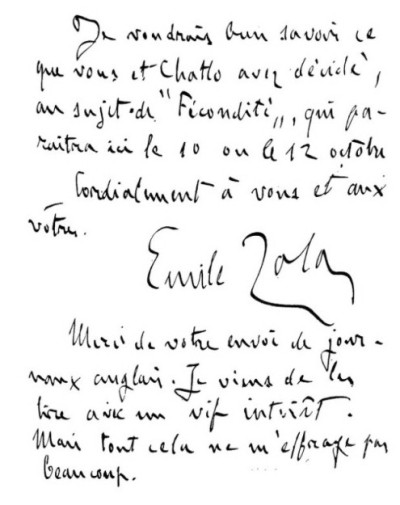 Je voudrais bien savoir ce
que vous et Chatto avez décidé,
au sujet de "Fécondité", qui pa-
raîtra ici le 10 ou le 12 octobre
Cordialement à vous et aux
vôtres.
Emile Zola
Merci de votre envoi de jour-
naux anglais. Je viens de les
lire avec un vif intérêt.
Mais tout cela ne m'effraye pas
beaucoup.